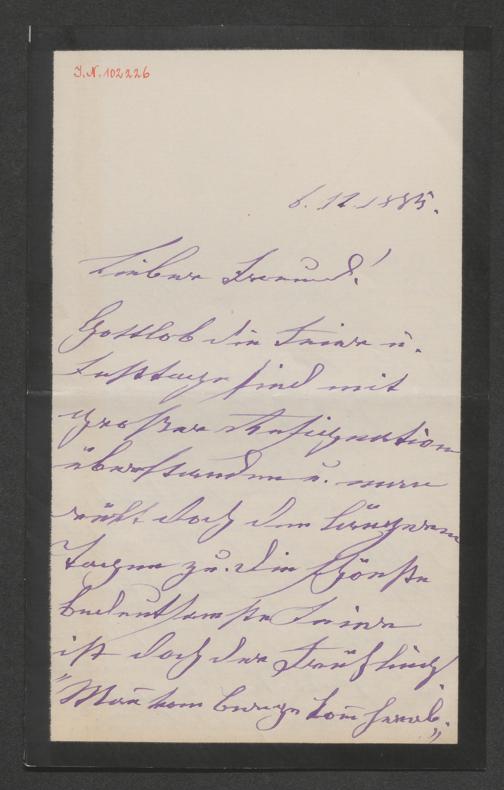 J.N. 102226
6. 12. 1885.
Lieber Freund!
Gottlob die Feier u.
Festtage sind mit
großer Resignation
überstanden u. man
rückt doch den längeren
Tagen zu. Die schönste
bedeutsamste Feier
ist doch der Frühling
"Man vom Berge kom herab."